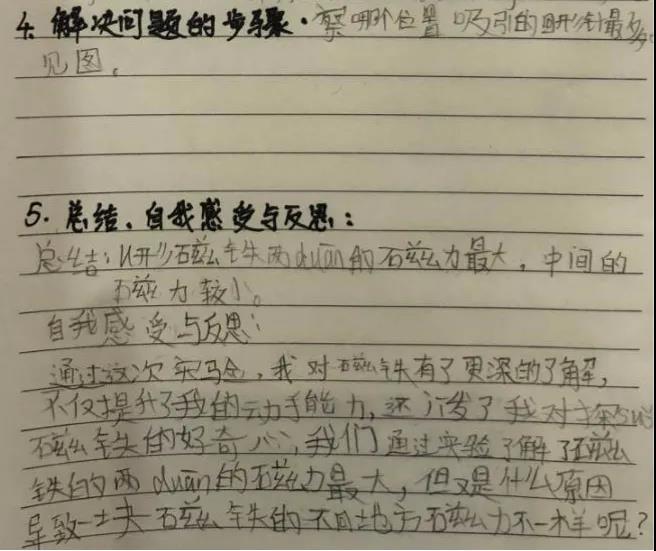 4. 解决问题的步骤·察哪个位置吸引的回形针最多。
见图。
5. 总结、自我感受与反思：
总结：U形磁铁两duān的磁力最大，中间的
磁力较小。
自我感受与反思：
通过这次实验，我对磁铁有了更深的了解，
不仅提升了我的动手能力，还激发了我对探究
磁铁的好奇心，我们通过实验了解了磁
铁的两duān的磁力最大，但又是什么原因
导致一块磁铁的不同地方磁力不一样呢？